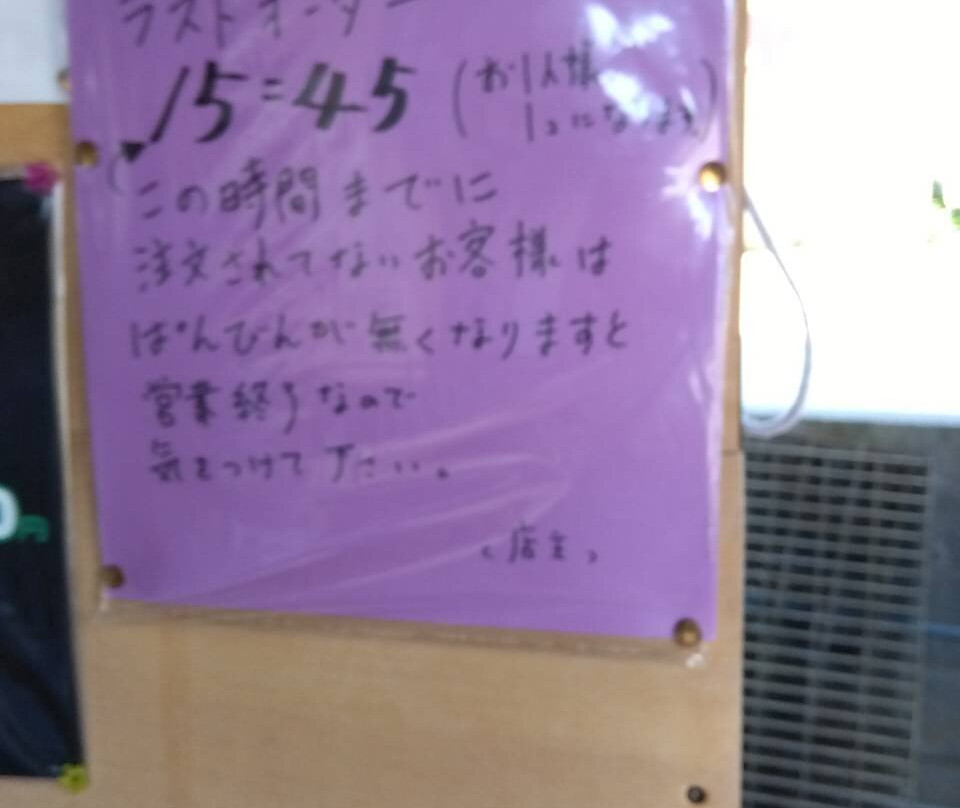 ラストオーダー
15=45 (お1人様
1コになります)
この時間までに
注文されてないお客様は
ぱんびんが無くなりますと
営業終うなので
気をつけて下さい。
(店主)
0円